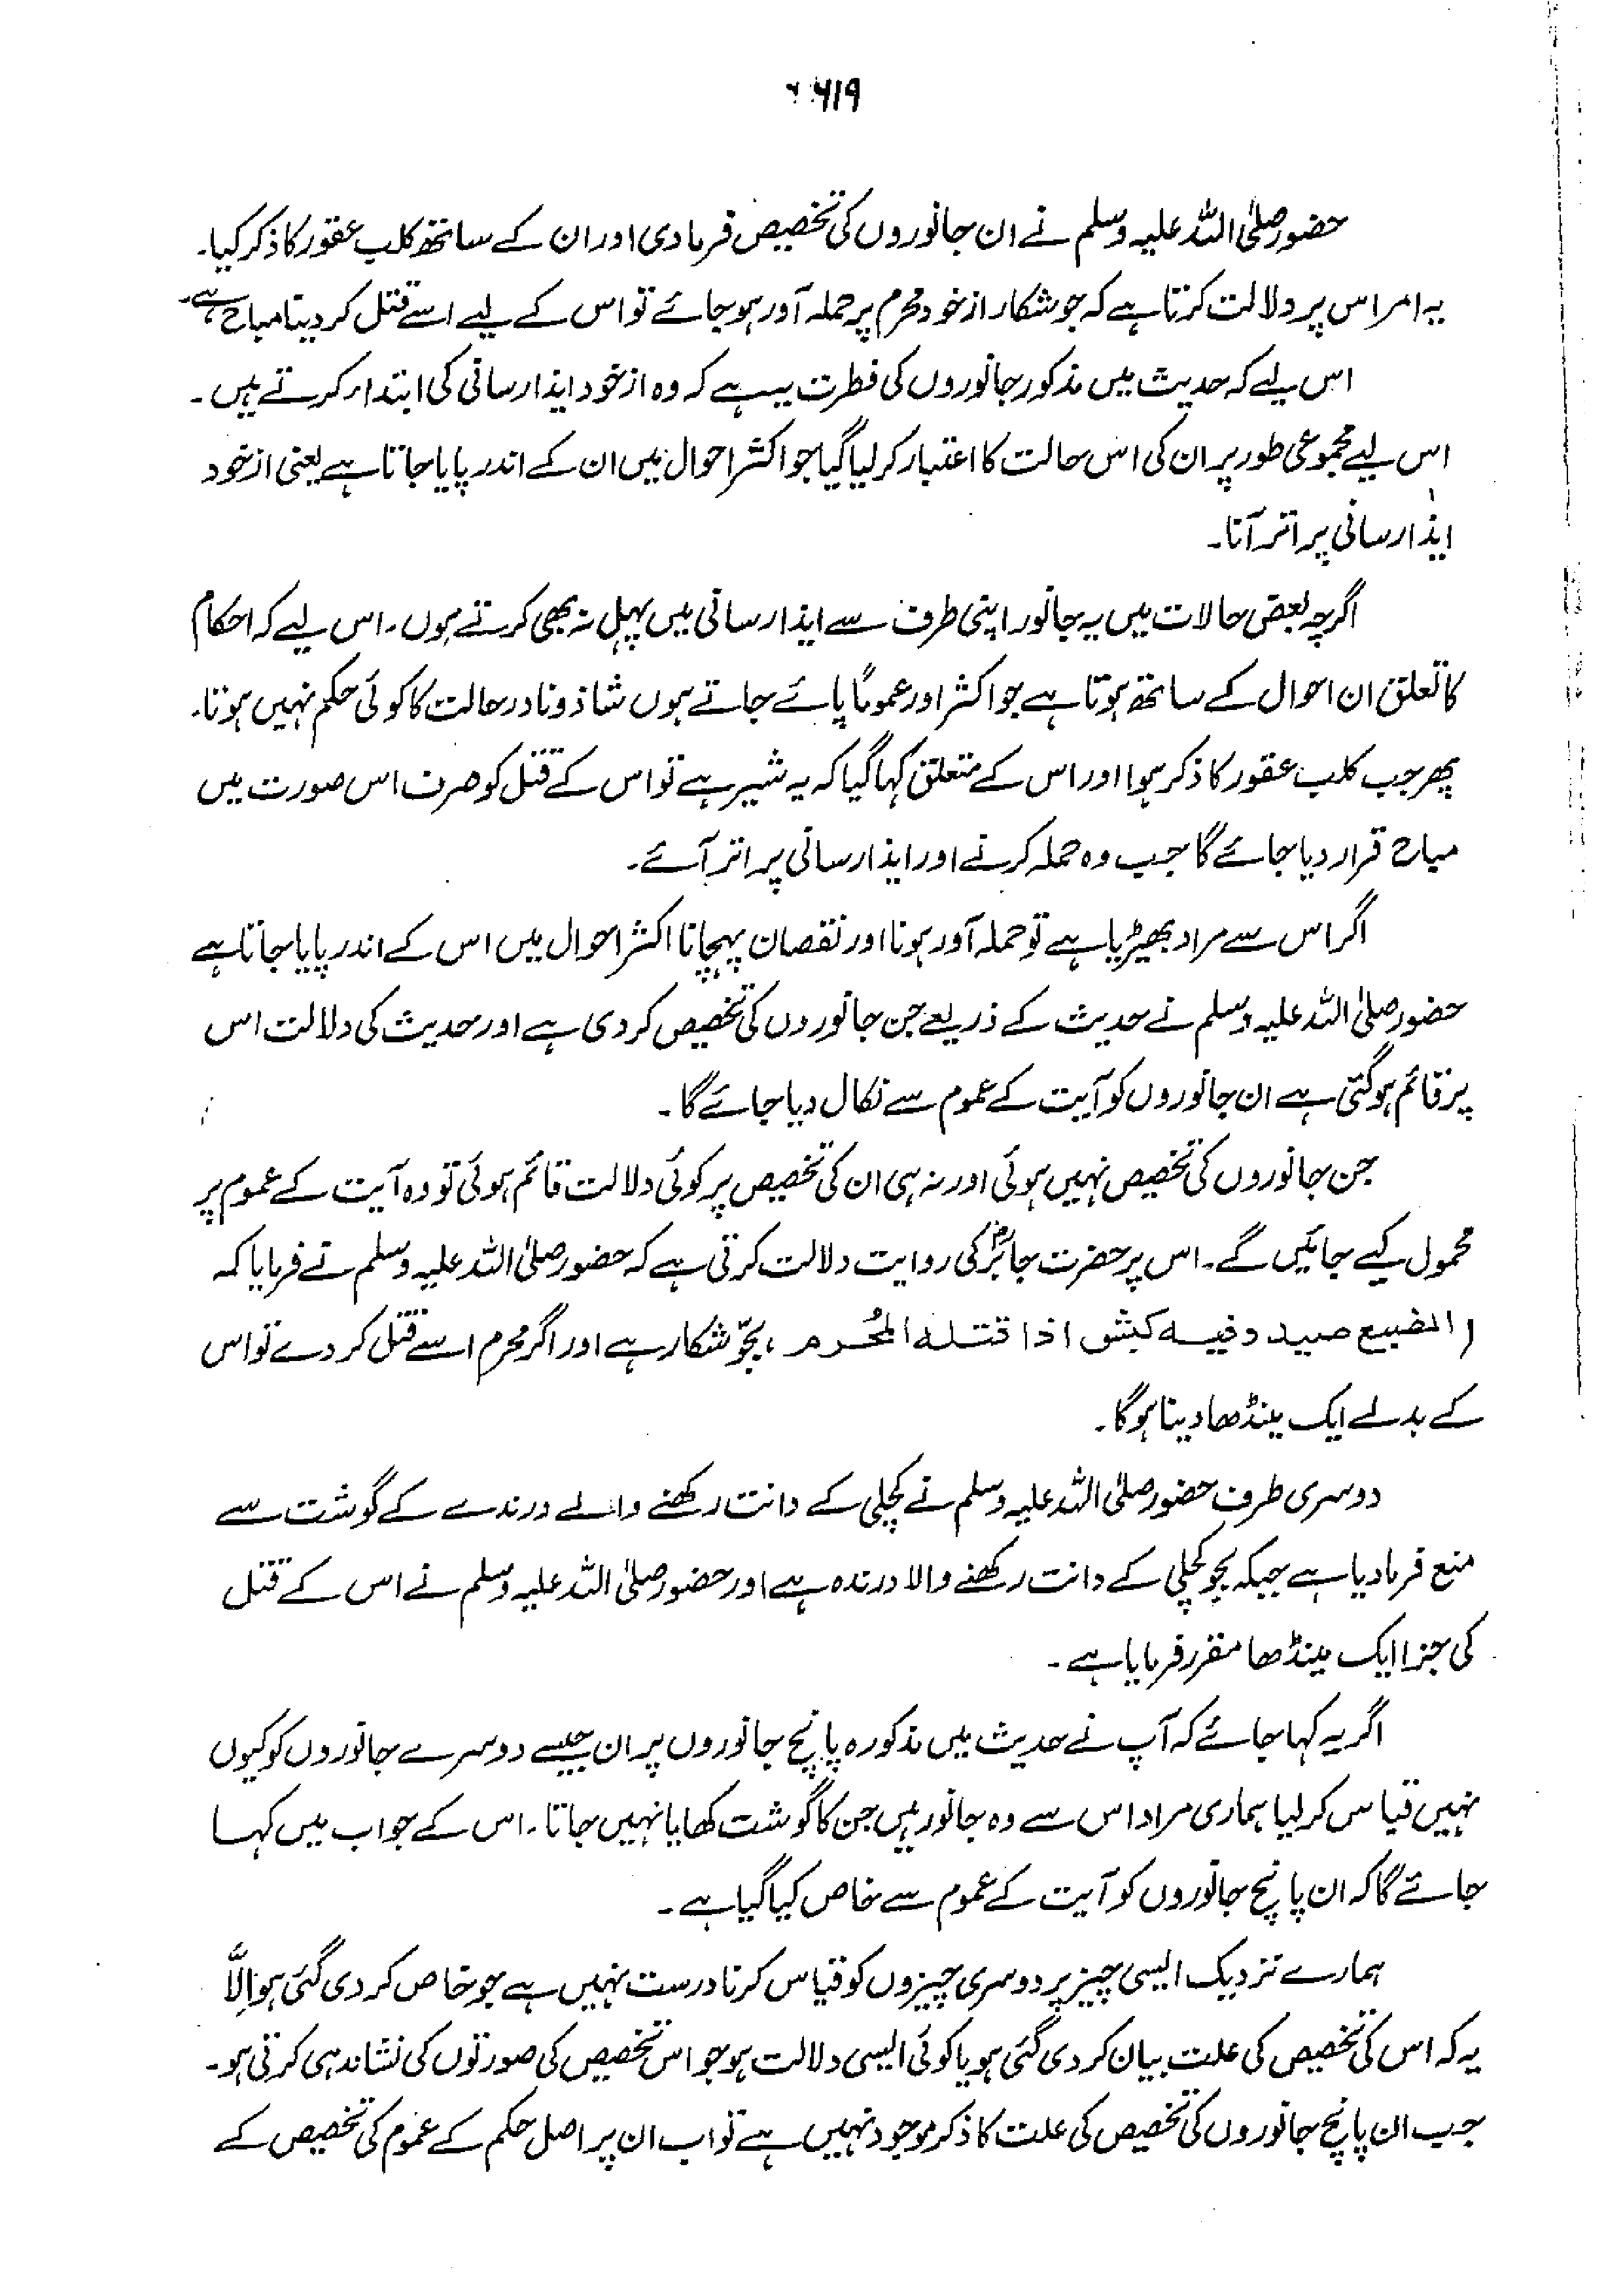 ۶۱۹
حضور صلی اللہ علیہ وسلم نے ان جانوروں کی تخصیص فرمادی اور ان کے ساتھ کلب عقور کا ذکر کیا۔
یہ امر اس پر دلالت کرتا ہے کہ جو شکار از خود محرم پر حملہ آور ہو جائے تو اس کے لیے اسے قتل کر دینا مباح ہے۔
اس لیے کہ حدیث میں مذکور جانوروں کی فطرت یہ ہے کہ وہ از خود ایذا رسانی کی ابتداء کرتے ہیں۔
اس لیے مجموعی طور پر ان کی اس حالت کا اعتبار کر لیا گیا جو اکثر احوال میں ان کے اندر پایا جاتا ہے یعنی از خود
ایذا رسانی پر اتر آنا۔
اگرچہ بعض حالات میں یہ جانور اپنی طرف سے ایذا رسانی میں پہل نہ بھی کرتے ہوں۔ اس لیے کہ احکام
کا تعلق ان احوال کے ساتھ ہوتا ہے جو اکثر اور عموماً پائے جاتے ہوں شاذ و نادر حالت کا کوئی حکم نہیں ہوتا۔
پھر جب کلب عقور کا ذکر ہوا اور اس کے متعلق کہا گیا کہ یہ شیر ہے تو اس کے قتل کو صرف اس صورت میں
مباح قرار دیا جائے گا جب وہ حملہ کرنے اور ایذا رسانی پر اتر آئے۔
اگر اس سے مراد بھیڑیا ہے تو حملہ آور ہونا اور نقصان پہچانا اکثر احوال میں اس کے اندر پایا جاتا ہے
حضور صلی اللہ علیہ وسلم نے حدیث کے ذریعے جن جانوروں کی تخصیص کر دی ہے اور حدیث کی دلالت اس
پر قائم ہو گئی ہے ان جانوروں کو آیت کے عموم سے نکال دیا جائے گا۔
جن جانوروں کی تخصیص نہیں ہوئی اور نہ ہی ان کی تخصیص پر کوئی دلالت قائم ہوئی تو وہ آیت کے عموم پر
محمول کیے جائیں گے۔ اس پر حضرت جابرؓ کی روایت دلالت کرتی ہے کہ حضور صلی اللہ علیہ وسلم نے فرمایا کہ
(الضبع صید وفیہ کبش اذا قتلہ المُحرم، بجّو شکار ہے اور اگر محرم اسے قتل کر دے تو اس
کے بدلے ایک مینڈھا دینا ہوگا۔
دوسری طرف حضور صلی اللہ علیہ وسلم نے کچلی کے دانت رکھنے والے درندے کے گوشت سے
منع فرما دیا ہے جبکہ بجو کچلی کے دانت رکھنے والا درندہ ہے اور حضور صلی اللہ علیہ وسلم نے اس کے قتل
کی جزا ایک مینڈھا مقرر فرمایا ہے۔
اگر یہ کہا جائے کہ آپ نے حدیث میں مذکورہ پانچ جانوروں پر ان جیسے دوسرے جانوروں کو کیوں
نہیں قیاس کر لیا ہماری مراد اس سے وہ جانور ہیں جن کا گوشت کھایا نہیں جاتا۔ اس کے جواب میں کہا
جائے گا کہ ان پانچ جانوروں کو آیت کے عموم سے خاص کیا گیا ہے۔
ہمارے نزدیک ایسی چیز پر دوسری چیزوں کو قیاس کرنا درست نہیں ہے جو خاص کر دی گئی ہو اِلَّا
یہ کہ اس کی تخصیص کی علت بیان کر دی گئی ہو یا کوئی ایسی دلالت ہو جو اس تخصیص کی صورتوں کی نشاندہی کرتی ہو۔
جب ان پانچ جانوروں کی تخصیص کی علت کا ذکر موجود نہیں ہے تو اب ان پر اصل حکم کے عموم کی تخصیص کے